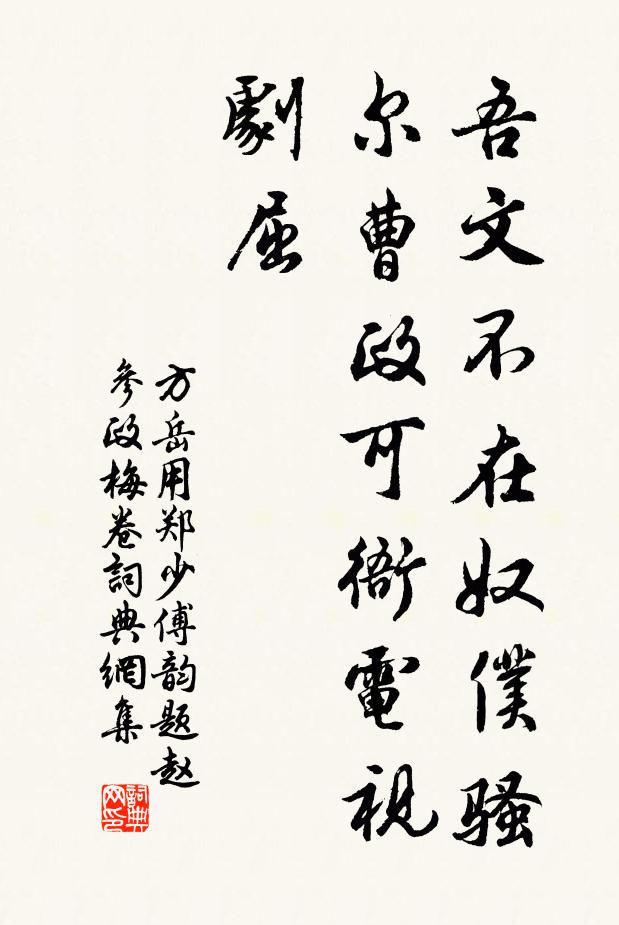 吾文不在奴僕騷
尔曹政可衙電視
劇屈
方岳用郑少傅韵题赵
參政梅卷詞典網集
詞典网印